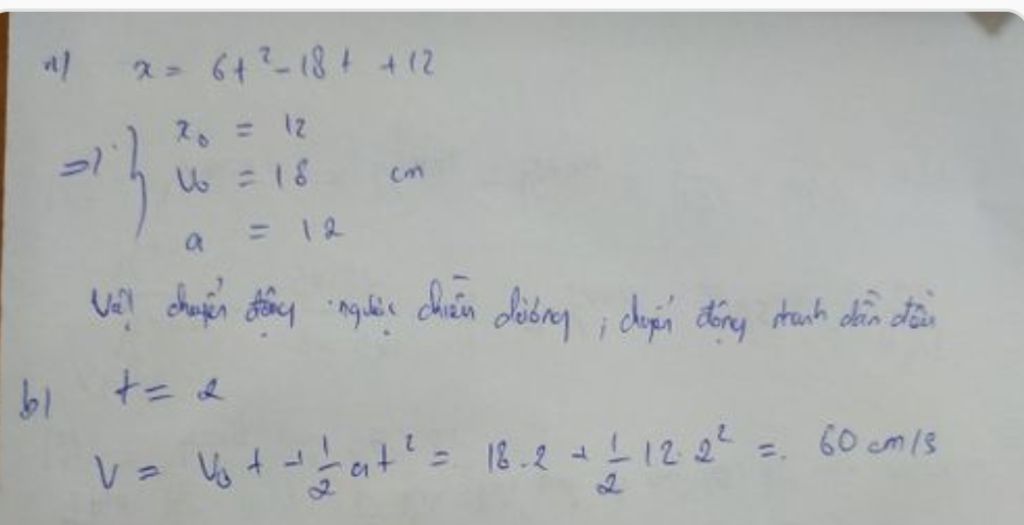 a) x = 6t² - 18t + 12
=> } x₀ = 12
v₀ = 18 cm
a = 12
Vật chuyển động ngược chiều dương, chuyển động nhanh dần đều
b) t = 2
V = V₀t + 1/2 at² = 18.2 + 1/2 12.2² = 60 cm/s